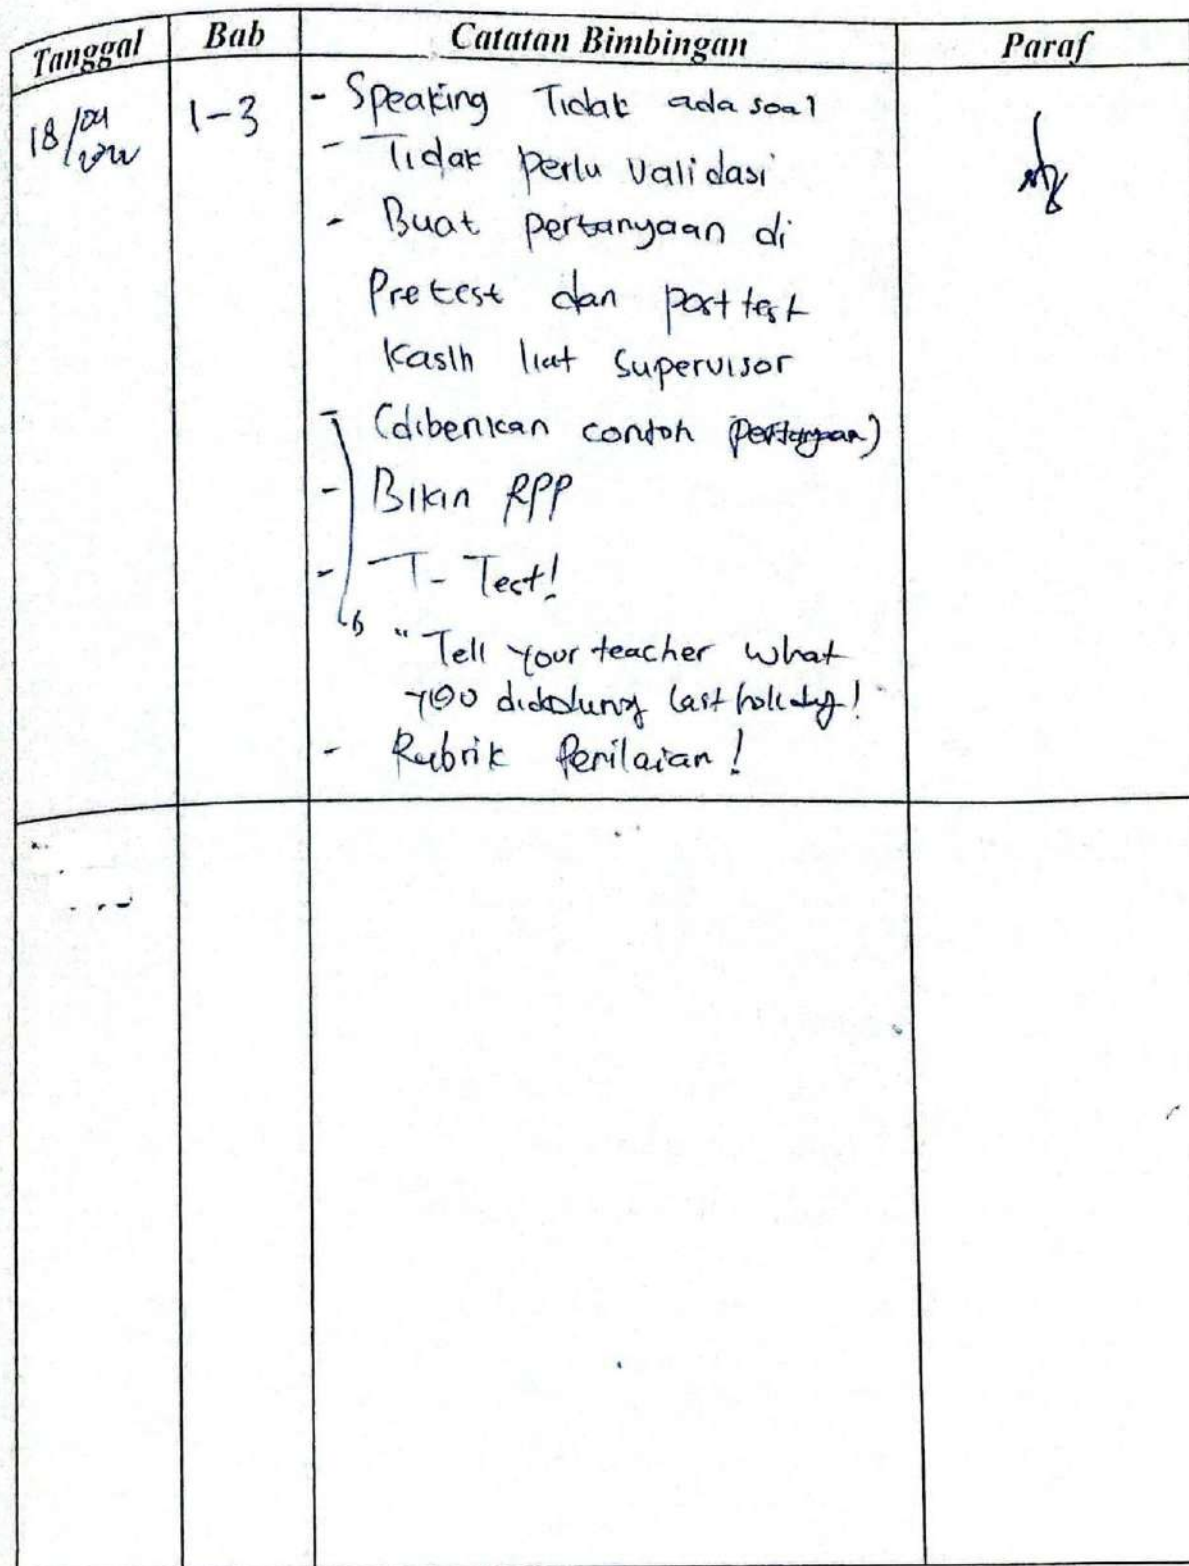 Tanggal Bab Catatan Bimbingan Paraf
18/04 1-3 - Speaking Tidak ada soal
- Tidak perlu Validasi
- Buat pertanyaan di
Pretest dan posttest
Kasih liat Supervisor
- (diberikan contoh pertanyaan)
- Bikin RPP
- T-Test!
"Tell your teacher what
you did during last holiday!"
- Rubrik Penilaian!